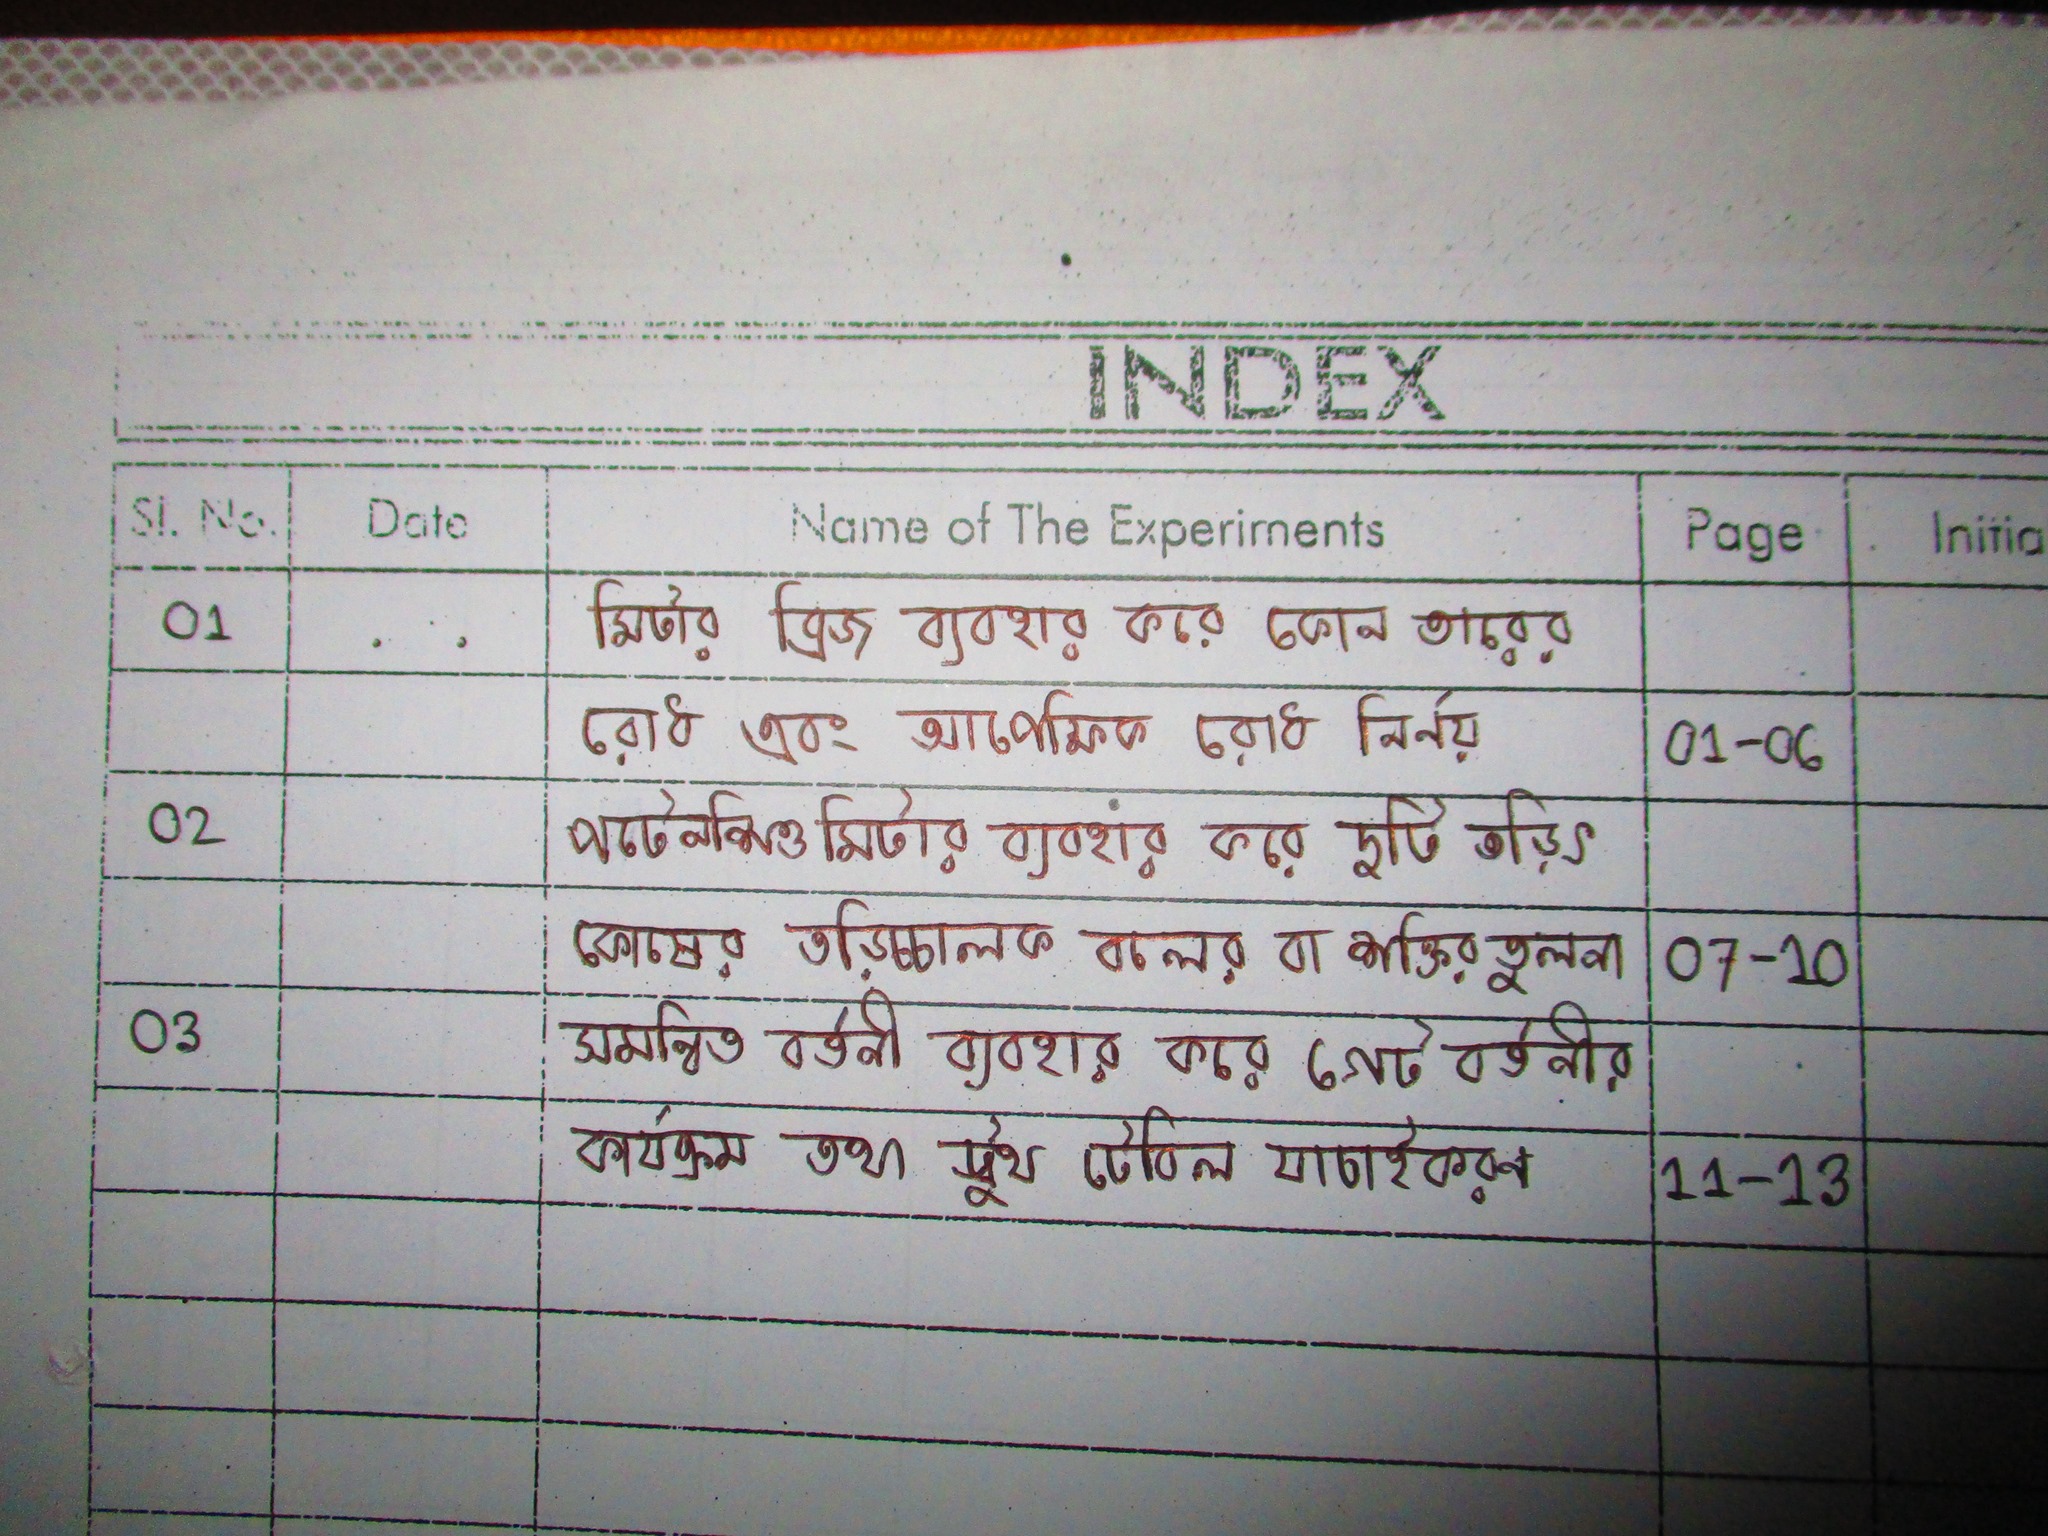 INDEX
Sl. No. Date Name of The Experiments Page Initia
01 মিটার ব্রিজ ব্যবহার করে কোন তারের
রোধ এবং আপেক্ষিক রোধ নির্নয় 01-06
02 পটেনশিওমিটার ব্যবহার করে দুটি তড়িৎ
কোষের তড়িচ্চালক বলের বা শক্তির তুলনা 07-10
03 সমন্বিত বর্তনী ব্যবহার করে গেট বর্তনীর
কার্যক্রম তথা ট্রুথ টেবিল যাচাইকরণ 11-13